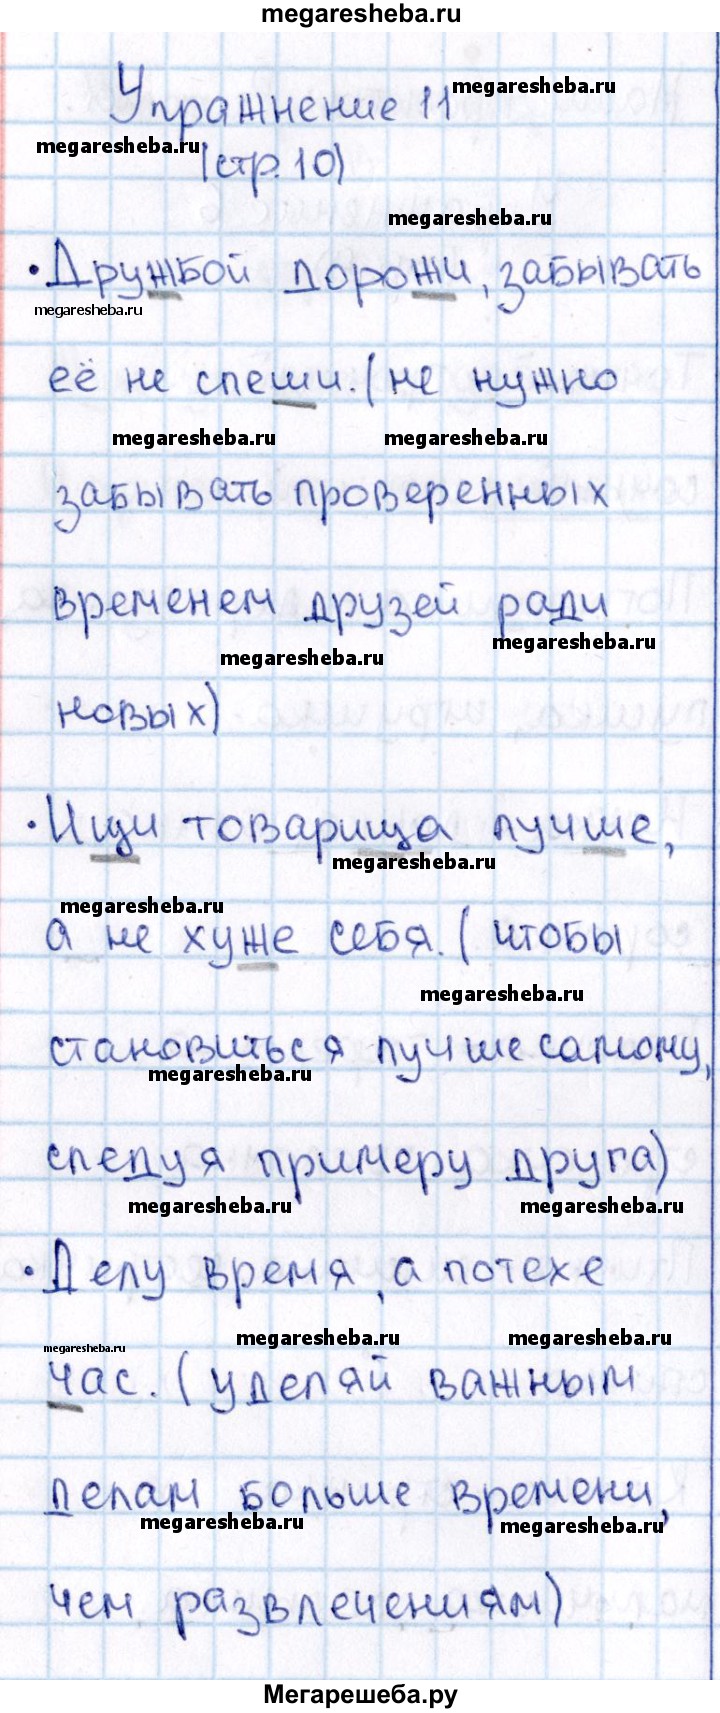 megaresheba.ru
Упражнение 11
megaresheba.ru
megaresheba.ru
(стр. 10)
megaresheba.ru
• Дружбой дорожи, забывать
megaresheba.ru
её не спеши. (не нужно
megaresheba.ru megaresheba.ru
забывать проверенных
временем друзей ради
megaresheba.ru
megaresheba.ru
новых)
• Ищи товарища лучше,
megaresheba.ru
megaresheba.ru
а не хуже себя. (чтобы
megaresheba.ru
становиться лучше самому,
megaresheba.ru
следуя примеру друга)
megaresheba.ru megaresheba.ru
• Делу время, а потехе
megaresheba.ru megaresheba.ru
megaresheba.ru
час. (уделяй важным
делам больше времени,
megaresheba.ru megaresheba.ru
чем развлечениям)
Мегарешеба.ру